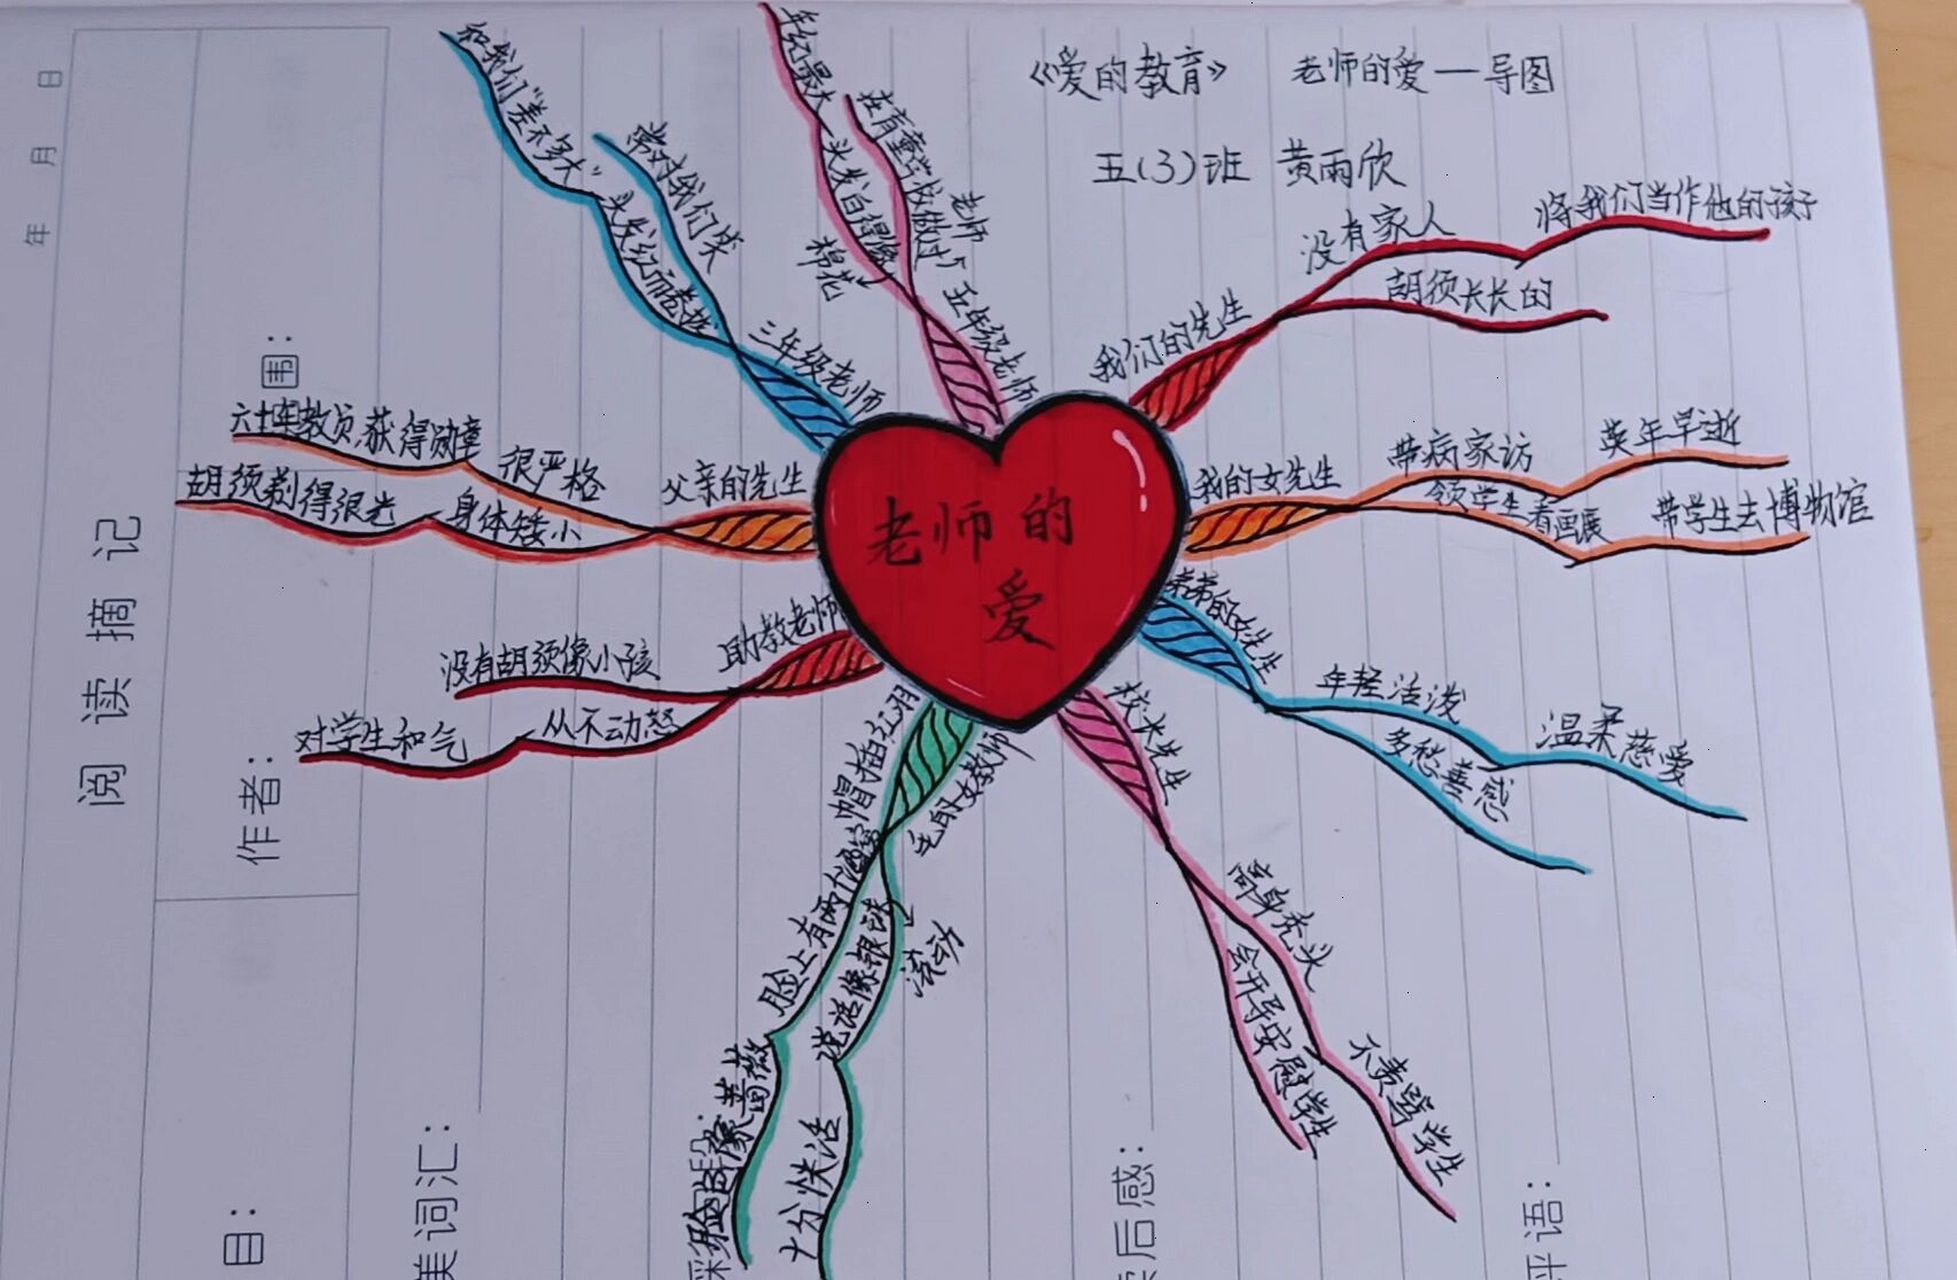 《爱的教育》 老师的爱一导图
五(3)班 黄雨欣
老师的
爱
我们的先生
没有家人
将我们当作他的孩子
胡须长长的
我的女先生
带病家访
英年早逝
领学生看画展
带学生去博物馆
弟弟的女先生
年轻活泼
温柔慈爱
多愁善感
校长先生
高身秃头
不责骂学生
会开导安慰学生
毛职女教师
帽插红羽
脸上有两个酒窝
脸色像蔷薇
说话像银球
滚动
十分快活
助教老师
没有胡须像小孩
从不动怒
对学生和气
父亲的先生
很严格
六十年教员,获得勋章
身体矮小
胡须剃得很光
三年级老师
常对我们笑
头发红而卷
和我们“差不多大”
五年级老师
在盲童学校做过
老师
年纪最大
头发白得像
棉花
年 月 日
阅读摘记
作者:
目:
美词汇:
后感:
评语: